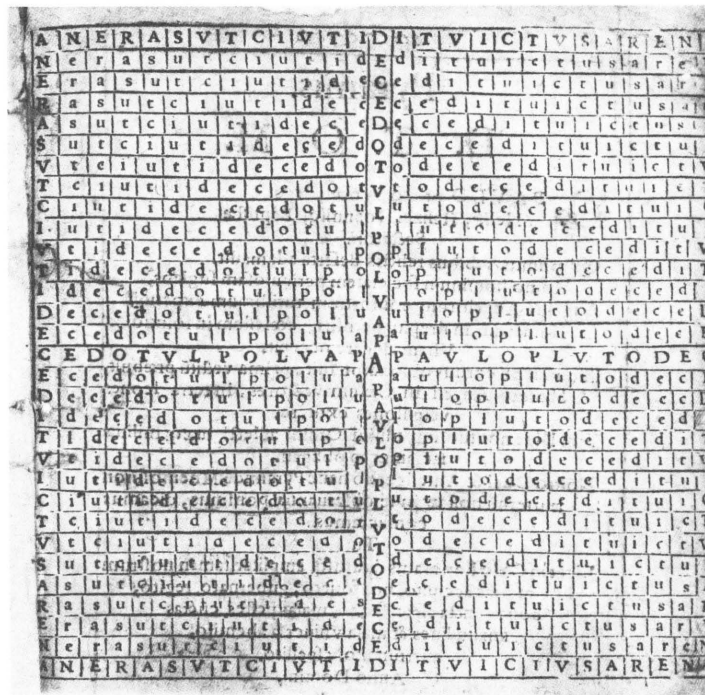 A N E R A S V T C I V T I D I T V I C T V S A R E N
N e r a s u t c i u t i d E d i t u i c t u s a r e
E r a s u t c i u t i d e C e d i t u i c t u s a r
R a s u t c i u t i d e c E c e d i t u i c t u s a
A s u t c i u t i d e c e D e c e d i t u i c t u s
S u t c i u t i d e c e d O d e c e d i t u i c t u
V t c i u t i d e c e d o T o d e c e d i t u i c t V
T c i u t i d e c e d o t V t o d e c e d i t u i c
C i u t i d e c e d o t u L u t o d e c e d i t u i
I u t i d e c e d o t u l P l u t o d e c e d i t u
V t i d e c e d o t u l p O p l u t o d e c e d i t V
T i d e c e d o t u l p o L o p l u t o d e c e d i T
I d e c e d o t u l p o l V l o p l u t o d e c e d
D e c e d o t u l p o l u A u l o p l u t o d e c e
E c e d o t u l p o l u a P a u l o p l u t o d e c E
C E D O T V L P O L V A P A P A V L O P L V T O D E C
E c e d o t u l p o l u a P a u l o p l u t o d e c E
D e c e d o t u l p o l u A u l o p l u t o d e c e
I d e c e d o t u l p o l V l o p l u t o d e c e d
T i d e c e d o t u l p o L o p l u t o d e c e d i T
V t i d e c e d o t u l p O p l u t o d e c e d i t V
I u t i d e c e d o t u l P l u t o d e c e d i t u
C i u t i d e c e d o t u L u t o d e c e d i t u i
T c i u t i d e c e d o t V t o d e c e d i t u i c
V t c i u t i d e c e d o T o d e c e d i t u i c t V
S u t c i u t i d e c e d O d e c e d i t u i c t u
A s u t c i u t i d e c e D e c e d i t u i c t u s
R a s u t c i u t i d e c E c e d i t u i c t u s a
E r a s u t c i u t i d e C e d i t u i c t u s a r
N e r a s u t c i u t i d E d i t u i c t u s a r e
A N E R A S V T C I V T I D I T V I C T V S A R E N